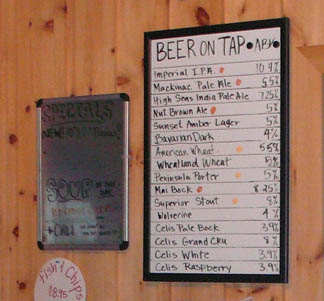 BEER ON TAP • ABV •
Imperial I.P.A. 10.4%
Mackinac Pale Ale 5.5%
High Seas India Pale Ale 7.25%
Nut Brown Ale 5%
Sunset Amber Lager 5%
Bavarian Dark 4%
American Wheat 5.5%
Wheatland Wheat 5%
Peninsula Porter 5%
Mai Bock 8.25%
Superior Stout 8%
Wolverine 4%
Celis Pale Bock 3.9%
Celis Grand CRU 8%
Celis White 3.9%
Celis Raspberry 3.9%
SPECIALS
SOUP OF THE DAY
CHILI
Fish & Chips
$8.95